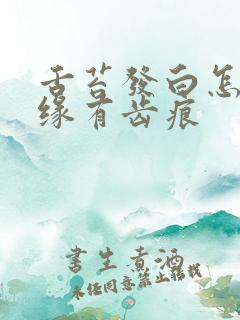 舌苔發白怎
緣有齿痕
書生煮酒
未经同意禁止转载